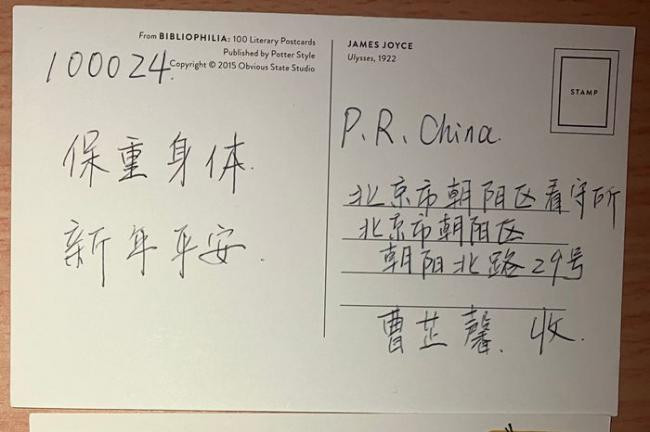 From BIBLIOPHILIA: 100 Literary Postcards
Published by Potter Style
Copyright © 2015 Obvious State Studio
100024.
保重身体.
新年平安.
JAMES JOYCE
Ulysses, 1922
STAMP
P.R.China.
北京市朝阳区看守所
北京市朝阳区
朝阳北路29号
曹芷馨.收.